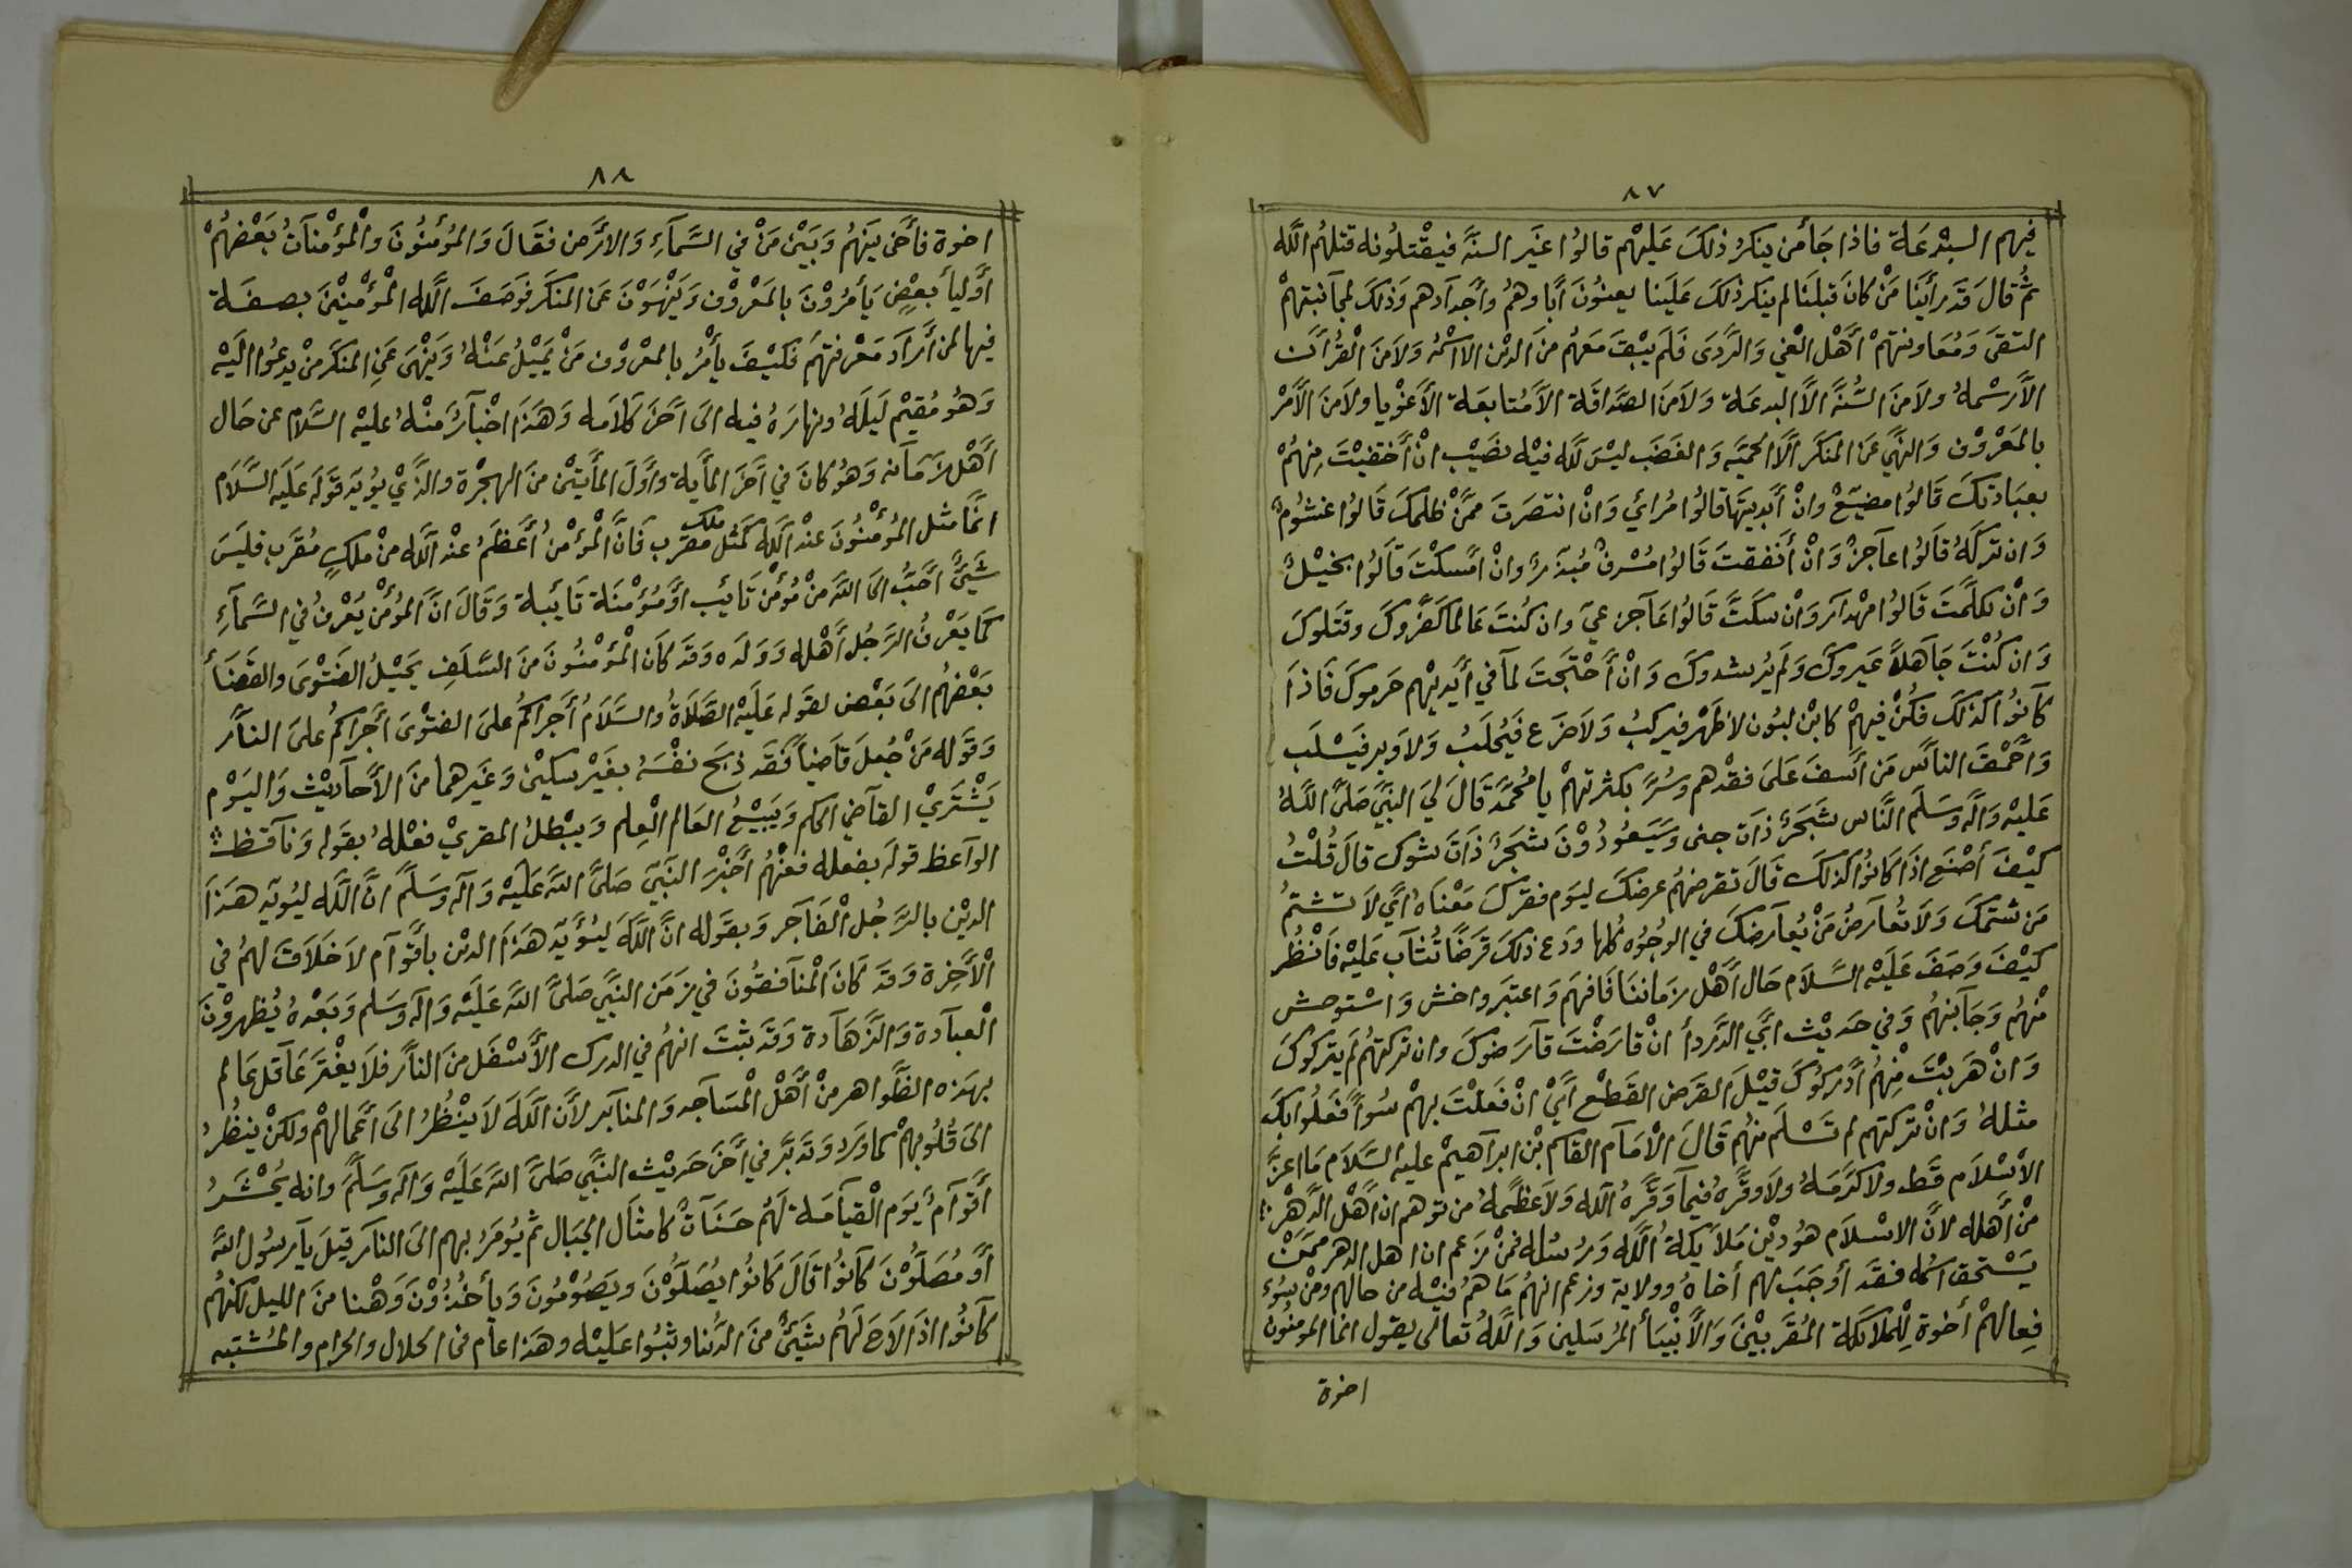 ٨٧
فيهم البدعة فاذا جأ من ينكر ذلك عليهم قالوا غير السنة فيقتلونه قتلهم الله
ثم قال قد رأينا من كان قبلنا لم ينكر ذلك علينا يعنون أباوهم وأجدآدهم وذلك لمجآنبتهم
التقى ومعاونتهم أهل الغي والردى فلم يبق معهم من الدين الا اسمه ولا من القرآن
الا رسمه ولا من السنة الا البدعة ولا من الصداقة الا متابعة الأغويا ولا من الأمر
بالمعروف والنهي عن المنكر الا الحمية والغضب ليس لله فيه نصيب ان أختفيت منهم
بعبادتك قالوا مضيع وان أبديتها قالوا مرائي وان انتصرت ممن ظلمك قالوا غشوم
وان تركه قالوا عآجز وان أنفقت قالوا مسرف مبذر وان امسكت قالوا بخيل
وان تكلمت قالوا مهدار وان سكت قالوا عآجز عي وان كنت عالما كفروك وقتلوك
وان كنت جاهلا عيروك ولم يرشدوك وان أحتجت لمآ في أيديهم حرموك فاذا
كآنوا كذلك فكن فيهم كابن لبون لا ظهر فيركب ولا ضرع فيحلب ولا وبر فيسلب
وأحمق النآس من أسف على فقدهم وسر بكثرتهم يا محمد قال لي النبي صلى الله
عليه وآله وسلم النآس شجر ذآت جنى وسيعودون شجر ذآت شوك قال قلت
كيف أصنع اذا كانوا كذلك قال تقرضهم عرضك ليوم فقرك معناه أي لا تشتم
من شتمك ولا تعآرض من يعآرضك في الوجوه كلها ودع ذلك قرضا تثآب عليه فانظر
كيف وصف عليه السلام حال أهل زماننا فافهم واعتبر واخش واستوحش
منهم وجآنبهم وفي حديث ابي الدردأ ان قارضت قآرضوك وان تركتهم لم يتركوك
وان هربت منهم أدركوك قيل القرض القطع اي ان فعلت بهم سوأ فعلوا بك
مثله وان تركتهم لم تسلم منهم قال الأمآم القاسم بن ابرآهيم عليه السلام ما اعز
الأسلام قط ولا كرمه ولا وقره فيمآ وقره الله ولا عظمه من توهم ان أهل الدهر
من أهله لان الاسلام هو دين ملايكة الله ورسله فمن زعم ان اهل الدهر ممن
يستحق اسمه فقد أوجب لهم أخاه وولاية وزعم انهم ما هم فيه من حالهم ومن سوء
فعالهم أخوة للملائكة المقربين والأنبيأ المرسلين والله تعالى يقول انما المومنون
اخوة
٨٨
اخوة فأخى بينهم وبين من في السمآء والارض فقال والمؤمنون والمؤمنآت بعضهم
أوليأ بعض يأمرون بالمعروف وينهون عن المنكر فوصف الله المؤمنين بصفة
فيها لمن أرآد معرفتهم فكيف يأمر بالمعروف من يميل عنه وينهى عن المنكر من يدعوا اليه
وهو مقيم ليله ونهاره فيه الى آخر كلامه وهذا اخبآر منه عليه السلام عن حال
أهل زمآنه وهو كان في آخر المأية واول المأيتين من الهجرة والذي يؤيد قوله عليه السلام
انما مثل المؤمنون عند الله كمثل ملك مقرب فان المؤمن أعظم عند الله من ملك مقرب فليس
شيئ أحب الى الله من مؤمن تايب او مؤمنة تايبة وقال ان المؤمن يعرف في السمآء
كما يعرف الرجل أهله وولده وقد كان المؤمنون من السلف يحيل الفتوى والقضأ
بعضهم الى بعض لقوله عليه الصلاة والسلام أجراكم على الفتوى أجراكم على النآر
وقوله من جعل قاضيا فقد ذبح نفسه بغير سكين وغيرهما من الأحآديث واليوم
يشتري القآضي الحكم ويبيع العالم العلم ويبطل المقري فعله بقوله ونآقظ
الوآعظ قوله بفعله فعنهم أخبر النبي صلى الله عليه وآله وسلم ان الله ليؤيد هذا
الدين بالرجل الفآجر وبقوله ان الله ليؤيد هذا الدين بأقوآم لا خلاق لهم في
الأخرة وقد كان المنآفقون في زمن النبي صلى الله عليه وآله وسلم وبعده يظهرون
العبآدة والزهآدة وقد ثبت انهم في الدرك الأسفل من النآر فلا يغتر عآقل عالم
بهذه الظواهر من أهل المسآجد والمنآبر لأن الله لا ينظر الى أعمالهم ولكن ينظر
الى قلوبهم كما ورد وتدبر في أخر حديث النبي صلى الله عليه وآله وسلم وانه يحشر
أقوآم يوم القيآمة لهم حسنآت كامثال الجبال ثم يؤمر بهم الى النآر قيل يآ رسول الله
أو مصلون كآنوا قال كانوا يصلون ويصومون ويأخذون وهنا من الليل لكنهم
كآنوا اذا لاح لهم شيئ من الدنيا وثبوا عليه وهذا عام في الحلال والحرام والمشتبه